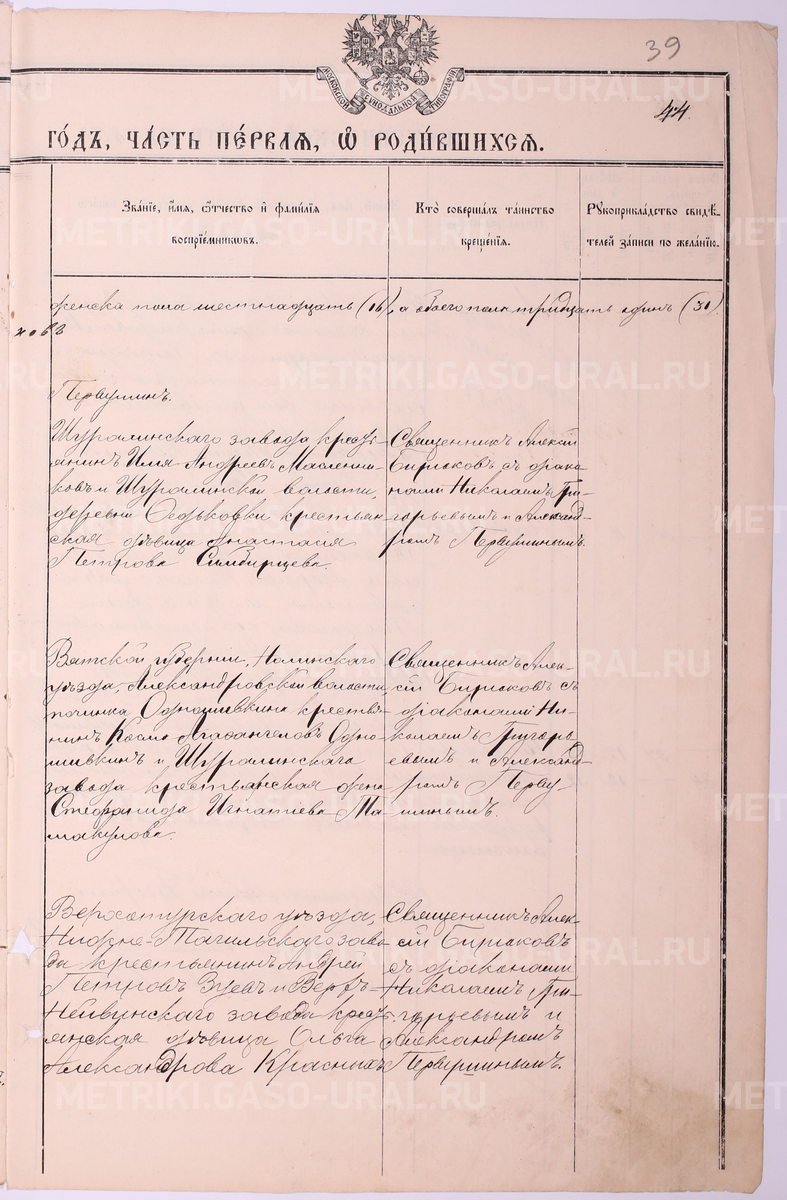 39
44.
МОСКОВСКОЙ СѴНОДАЛЬНОЙ ТИПОГРАФІЙ
ГО́ДЪ, ЧА́СТЬ ПЕ́РВАѦ, Ѡ҆ РОДИ́ВШИХСѦ.
Зва́ніе, и҆́мѧ, ѻ҆́тчество и҆ фами́лїѧ
воспрїе́мникѡвъ.
Кто̀ соверша́лъ та́инство
креще́нїѧ.
Рꙋкоприкла́дство свидѣ́-
телей за́писи по жела́нїю.
женска пола шестнадцать (16), а обоего пола тридцать одинъ (31).
ховъ
Первушинъ.
Шуралинскаго завода кресть-
янинъ Илія Андреевъ Масленни-
ковъ и Шуралинской волости,
деревни Федьковки крестьян-
ская дѣвица Анастасія
Петрова Симбирцева.
Священникъ Алексій
Бирюковъ съ діако-
нами Николаемъ Гри-
горьевымъ и Александ-
ромъ Первушинымъ.
Вятской губерніи, Нолинскаго
уѣзда, Александровской волости
починка Одношивкина крестья-
нинъ Косма Агафангеловъ Одно-
шивкинъ и Шуралинскаго
завода крестьянская жена
Стефанида Игнатіева Ма-
макулова.
Священникъ Алек-
сій Бирюковъ съ
діаконами Ни-
колаемъ Григорь-
евымъ и Александ-
ромъ Перву-
шинымъ.
Верхотурскаго уѣзда,
Нижне-Тагильскаго заво-
да крестьянинъ Андрей
Петровъ Зуевъ и Верхъ-
Нейвинскаго завода кресть-
янская дѣвица Ольга
Александрова Красныхъ.
Священникъ Алек-
сій Бирюковъ
съ діаконами
Николаемъ Гри-
горьевымъ и
Александромъ
Первушинымъ.
METRIKI.GASO-URAL.RU